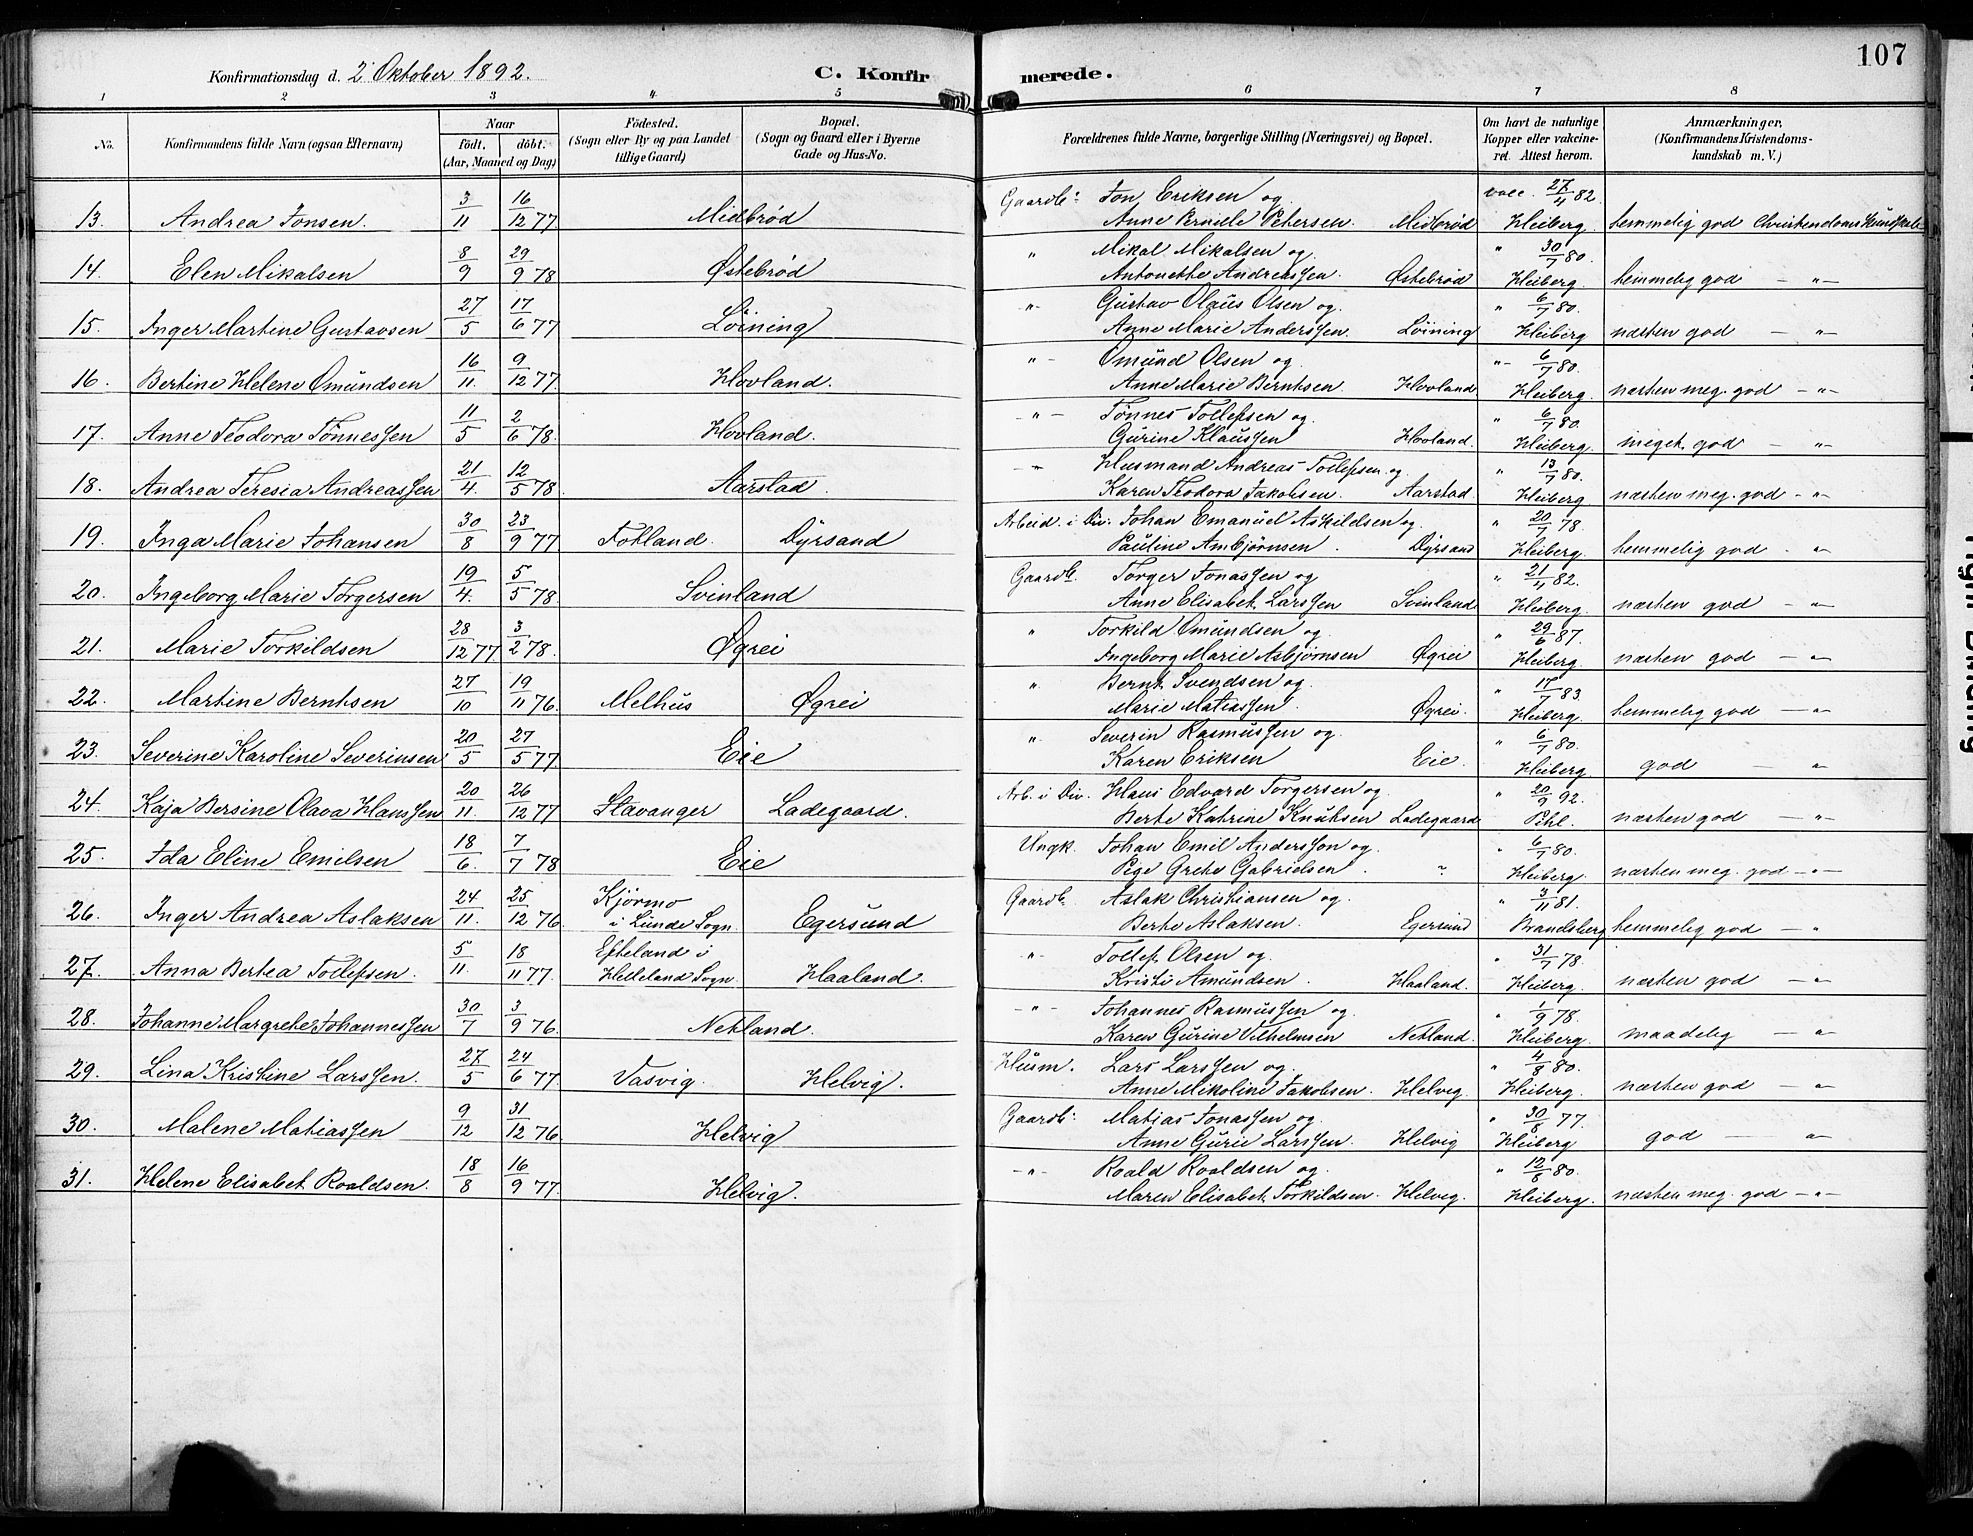 107
Konfirmationsdag d. 2 Oktober 1892. C. Konfirmerede.
1 2 3 4 5 6 7 8
No. Konfirmandens fulde Navn (ogsaa Efternavn) Naar födt. döbt. (Aar, Maaned og Dag) Födested. (Sogn eller By og paa Landet tillige Gaard) Bopæl. (Sogn og Gaard eller i Byerne Gade og Hus-No. Forældrenes fulde Navne, borgerlige Stilling (Næringsvei) og Bopæl. Om havt de naturlige Kopper eller vakcineret. Attest herom. Anmærkninger, (Konfirmandens Kristendomskundskab m. V.)
13. Andrea Jonsen. 3/11 16/12 77 Midbrød Gaardb: Jon Eriksen og vacc. 27/4 82.
Anne Pernille Petersen. Midbrød Heiberg. temmelig god Christendomskundskab
14. Elen Mikalsen 8/9 29/9 78 Østebrød " Mikal Mikalsen og " 30/7 80.
Antonette Andreassen. Østebrød Heiberg. temmelig god — " —
15. Inger Martine Gustavsen 27/5 17/6 77 Löining " - Gustav Olaus Olsen og " 6/7 80.
Anne Marie Anderssen. Löining Heiberg næsten god — " —
16. Bertine Helene Omundsen 16/11. 9/12 77 Hovland. " - Omund Olsen og " - 6/7 80.
Anne Marie Berntsen. Hovland. Heiberg. næsten meg. god — " —
17. Anne Teodora Tönnessen 11/5 2/6 78. Hovland. - " - Tönnes Tollefsen og " 6/7 80.
Gurine Klaussen Hovland. Heiberg. meget god — " —
18. Andrea Teresia Andreassen 21/4. 12/5 78. Aarstad. - " - Husmand Andreas Tollefsen og " 13/7 80.
Karen Teodora Jakobsen. Aarstad. Heiberg næsten meg. god - " -
19. Inga Marie Johansen 30/8 23/9 77 Fotland. Dyrsand Arbeid. i Div. Johan Emanuel Askildsen og " 20/7 78.
Pauline Ambjörnsen. Dyrsand Heiberg. temmelig god - " -
20. Ingeborg Marie Torgersen 19/4. 5/5 78. Svinland Gaardb. Torger Jonassen og " 21/4 82.
Anne Elisabet Larssen Svinland Heiberg. næsten god — " —
21. Marie Torkildsen 28/12 77 3/2 78. Øgrei " Torkild Omundsen og " 29/6 87.
Ingeborg Marie Asbjørnsen Øgrei Heiberg. næsten god — " —
22. Martine Berntsen 27/10 19/11 76. Melhus Øgrei " Bernt Svendsen og " 17/7 83.
Marie Matiassen Øgrei. Heiberg. temmelig god — " —
23. Severine Karoline Severinsen 20/5 27/5 77 Eie " Severin Rasmussen og " 6/7 80.
Karen Eriksen Eie. Heiberg god — " —
24. Kaja Bersine Olava Hanssen 20/11. 26/12 77 Stavanger Ladegaard. Arb. i Div. Hans Edvard Torgersen og " 20/9 92.
Berte Katrine Knutsen Ladegaard Pihl. næsten god — " —
25. Ida Eline Emilsen 18/6. 7/7 78 Eie Ungk. Johan Emil Andersson og " 6/7 80.
Pige Grete Gabrielsen. " Heiberg. næsten meg. god — " —
26. Inger Andrea Aslaksen 24/11. 25/12 76. Kjörmo i Lunde Sogn. Egersund Gaardb. Aslak Christiansen og " 3/11 81.
Berte Aslaksen. Egersund Brandsberg temmelig god — "
27. Anna Bertea Tollefsen. 5/11. 18/11 77. Efteland i Helleland Sogn. Haaland. " - Tollef Olsen og " 31/7 78.
Kristi Amundsen Haaland. Heiberg. næsten god — " —
28. Johanne Margrethe Johannessen 30/7 3/9 76. Netland. - " - Johannes Rasmussen og " 1/9 78.
Karen Gurine Vilhelmsen Netland. Heiberg. maadelig — " —
29. Lina Kristine Larssen. 27/5 24/6 77 Vasvig. Helvig. Husm. Lars Larssen og " 4/8 80.
Anne Mikoline Jakobsen. Helvig. Heiberg. næsten god — " —
30. Malene Matiassen 9/12 31/12 76 Helvig Gaardb: Matias Jonassen og " 30/8 77.
Anne Gurie Larssen. Helvig Heiberg god — " —
31. Helene Elisabet Roaldsen. 18/8 16/9 77. Helvig. - " - Roald Roaldsen og " 12/8 80.
Maren Elisabet Torkildsen. Helvig. Heiberg. næsten meg. god — " —